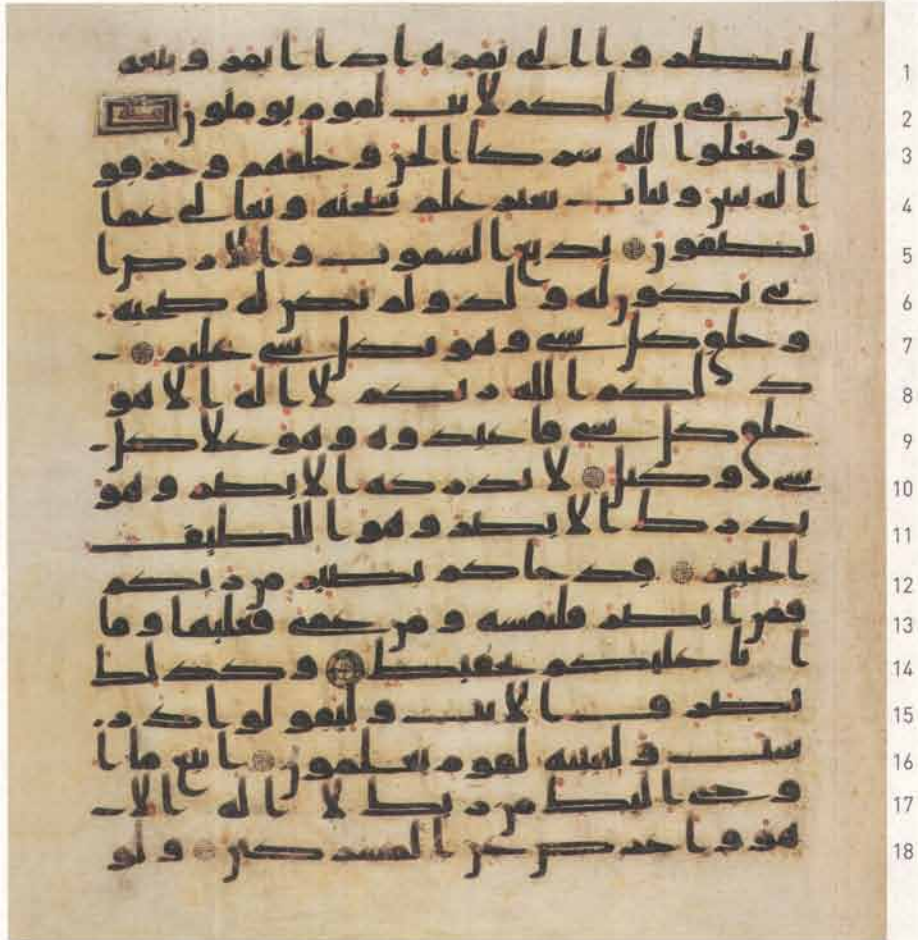 انظروا الى ثمره اذا اثمر وينعه 1
ان في ذلكم لايت لقوم يومنون 2
وجعلوا لله شركا الجن وخلقهم وخرقو 3
ا له بنين وبنات بغير علم سبحنه وتعالى عما 4
يصفون بديع السموت والارض ا 5
نى يكون له ولد ولم تكن له صحبه 6
وخلق كل شي وهو بكل شي عليم 7
ذلكم الله ربكم لا اله الا هو 8
خلق كل شي فاعبدوه وهو على كل 9
شي وكيل لا تدركه الابصر وهو 10
يدرك الابصر وهو اللطيف 11
الخبير قد جاكم بصير من ربكم 12
فمن ابصر فلنفسه ومن عمي فعليها وما 13
انا عليكم بحفيظ وكذلك 14
نصرف الايت وليقولوا در 15
ست ولنبينه لقوم يعلمون اتبع ما ا 16
وحي اليك من ربك لا اله الا 17
هو واعرض عن المشركين ولو 18